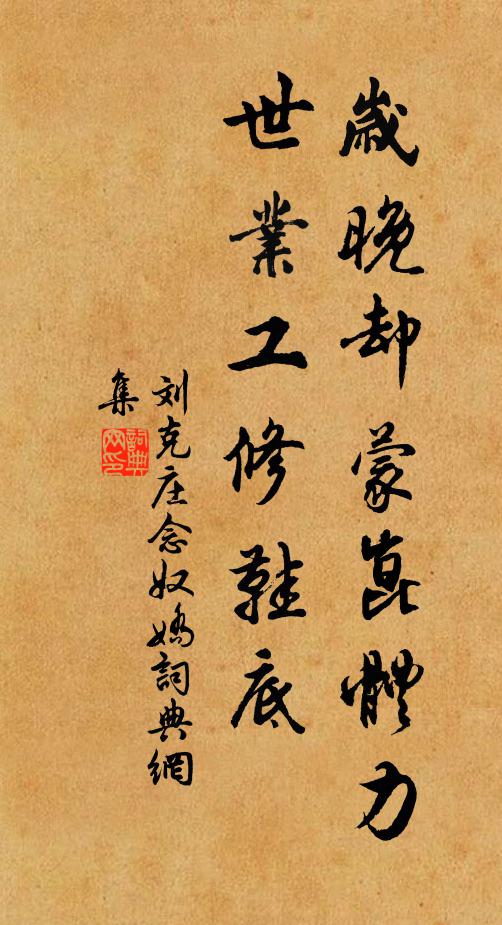 歲晚却蒙崑體力
世業工修鞋底
刘克庄念奴嬌詞典網
集
詞典网印